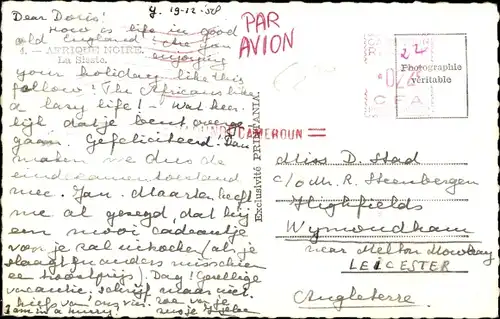 y. 19-12-58
Dear Doris!
How is life in good
old England? Are you
4. — AFRIQUE NOIRE.
La Sieste.
enjoying
your holiday like this
fellow! The Africans like
a lazy life! – Wat heer-
lijk dat je bent overge-
gaan. Gefeliciteerd! Dan
maken we dus de
eindexamentoestand
mee. Jan Maarten heeft
me al gezegd, dat hij
een mooi cadeautje
voor je zal uitzoeken (als je
slaagt, anders misschien
een troostprijs). Dag! Gezellige
vacantie, schrijf maar niet.
liefs van ons vier.
I am in a hurry!
Exclusivité PRINTANIA.
PAR
AVION
CAMEROUN
CFA
Photographie
véritable
Miss D. Stad
c/o Mr. R. Steenbergen
Highfields
Wymondham
near Melton Mowbray
LEICESTER
Angleterre.